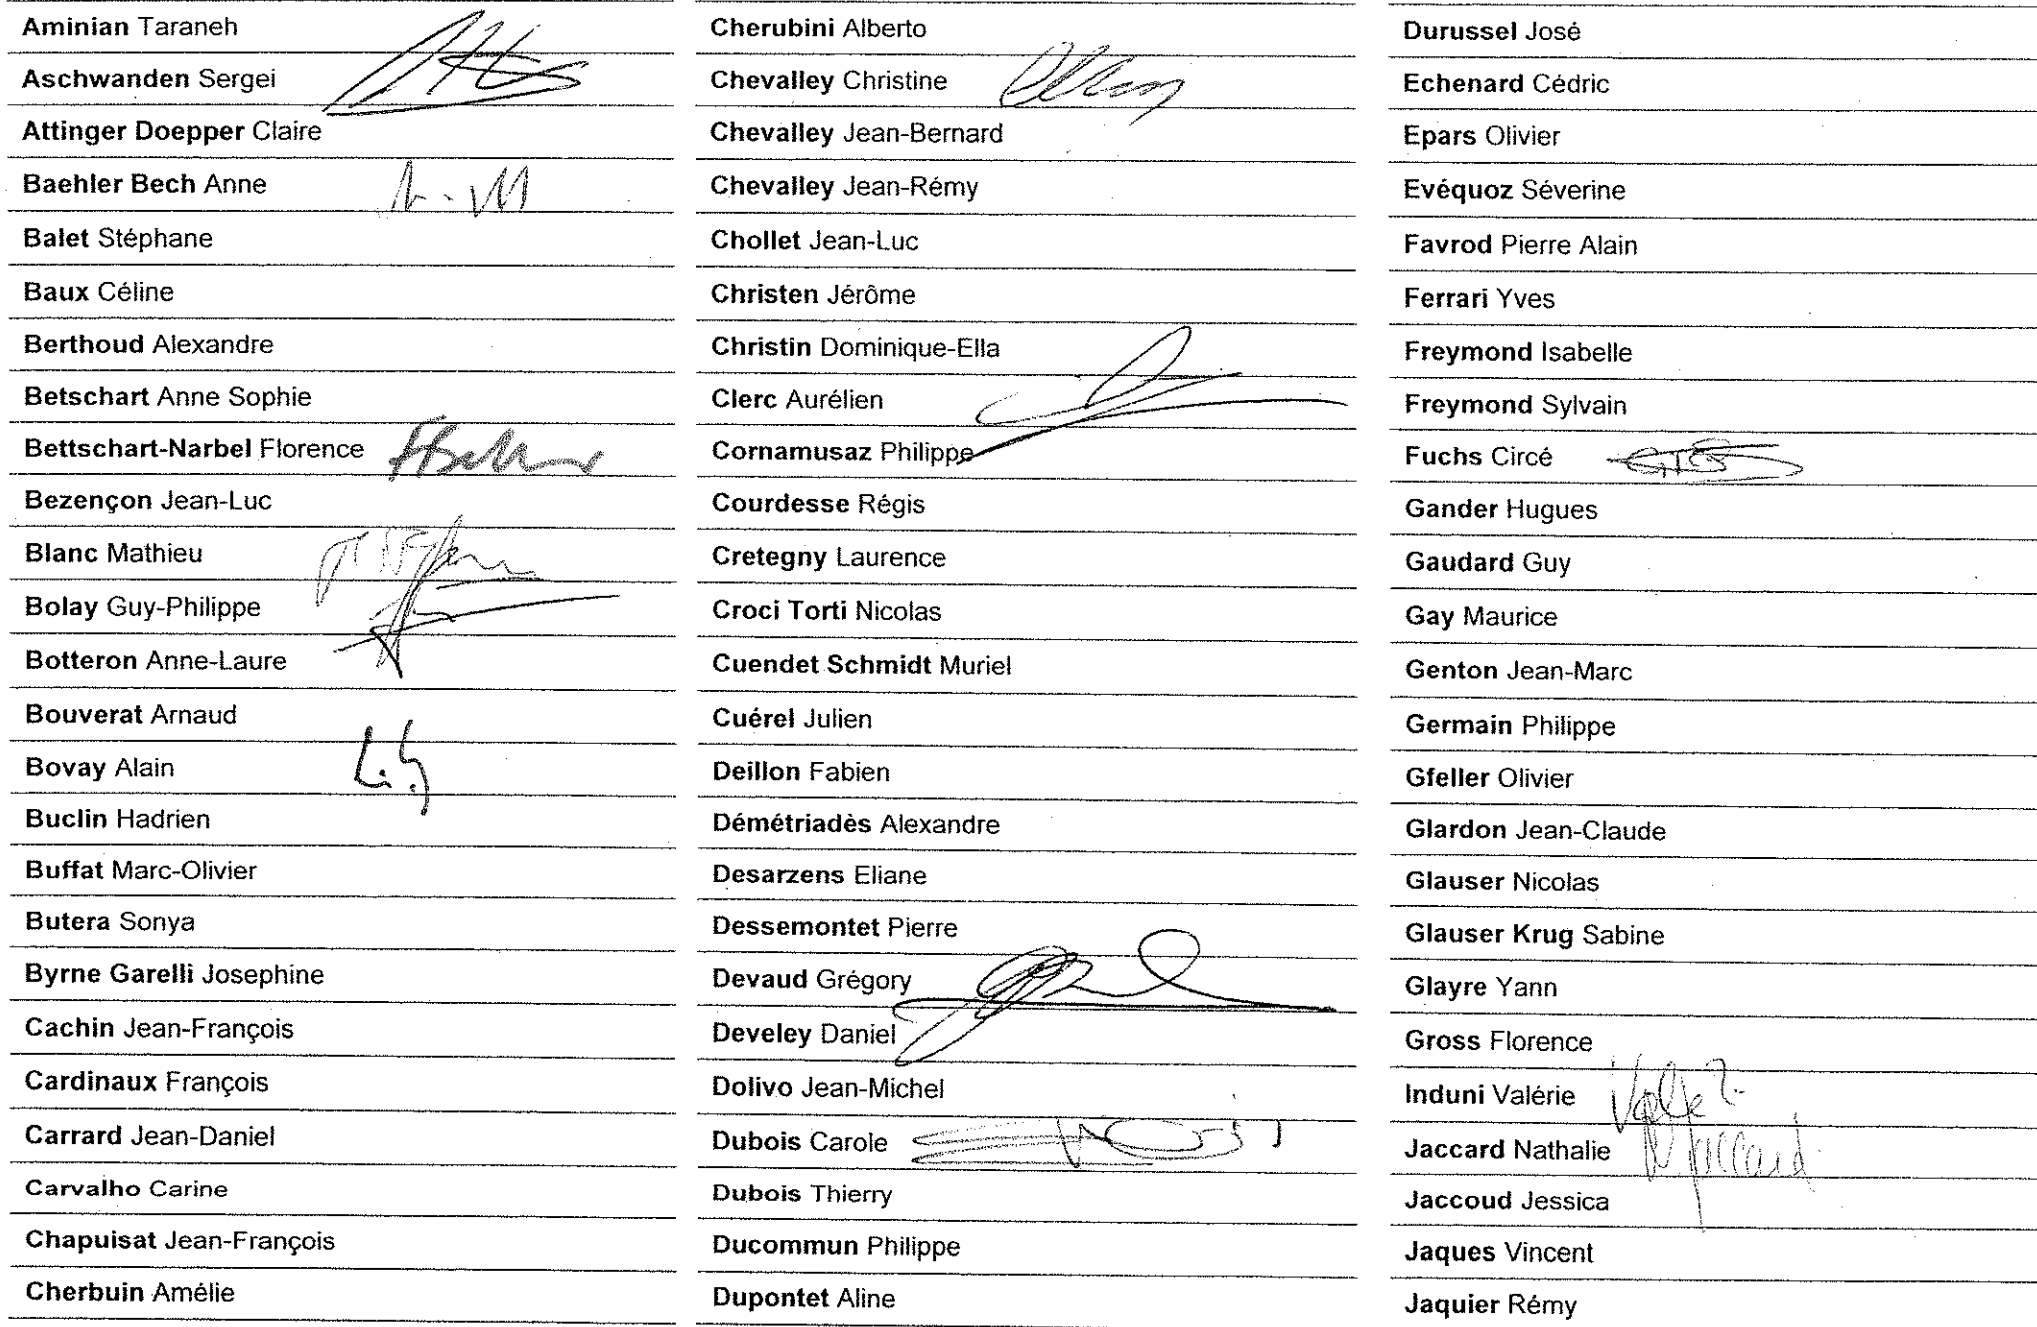 Aminian Taraneh
Aschwanden Sergei
Attinger Doepper Claire
Baehler Bech Anne
Balet Stéphane
Baux Céline
Berthoud Alexandre
Betschart Anne Sophie
Bettschart-Narbel Florence
Bezençon Jean-Luc
Blanc Mathieu
Bolay Guy-Philippe
Botteron Anne-Laure
Bouverat Arnaud
Bovay Alain
Buclin Hadrien
Buffat Marc-Olivier
Butera Sonya
Byrne Garelli Josephine
Cachin Jean-François
Cardinaux François
Carrard Jean-Daniel
Carvalho Carine
Chapuisat Jean-François
Cherbuin Amélie
Cherubini Alberto
Chevalley Christine
Chevalley Jean-Bernard
Chevalley Jean-Rémy
Chollet Jean-Luc
Christen Jérôme
Christin Dominique-Ella
Clerc Aurélien
Cornamusaz Philippe
Courdesse Régis
Cretegny Laurence
Croci Torti Nicolas
Cuendet Schmidt Muriel
Cuérel Julien
Deillon Fabien
Démétriadès Alexandre
Desarzens Eliane
Dessemontet Pierre
Devaud Grégory
Develey Daniel
Dolivo Jean-Michel
Dubois Carole
Dubois Thierry
Ducommun Philippe
Dupontet Aline
Durussel José
Echenard Cédric
Epars Olivier
Evéquoz Séverine
Favrod Pierre Alain
Ferrari Yves
Freymond Isabelle
Freymond Sylvain
Fuchs Circé
Gander Hugues
Gaudard Guy
Gay Maurice
Genton Jean-Marc
Germain Philippe
Gfeller Olivier
Glardon Jean-Claude
Glauser Nicolas
Glauser Krug Sabine
Glayre Yann
Gross Florence
Induni Valérie
Jaccard Nathalie
N. Jaccard
Jaccoud Jessica
Jaques Vincent
Jaquier Rémy